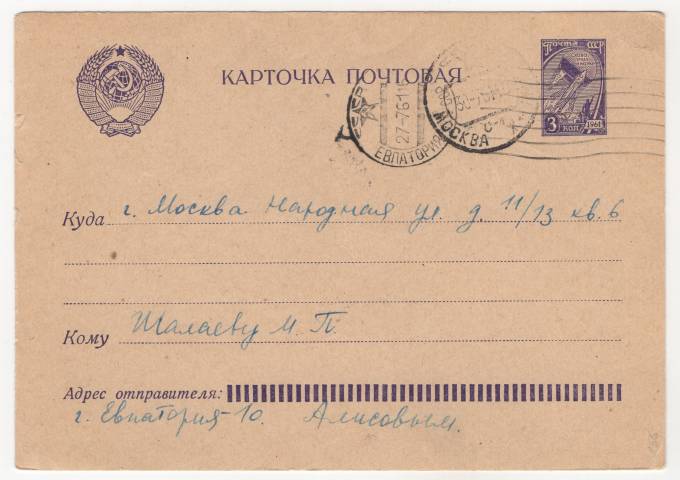 КАРТОЧКА ПОЧТОВАЯ
ПОЧТА СССР
3 КОП. 1961
27-7-61
ЕВПАТОРИЯ
МОСКВА
Куда г. Москва Народная ул. д. 11/13 кв. 6
Кому Шалаеву М. П.
Адрес отправителя:
г. Евпатория-10. Алисовым.